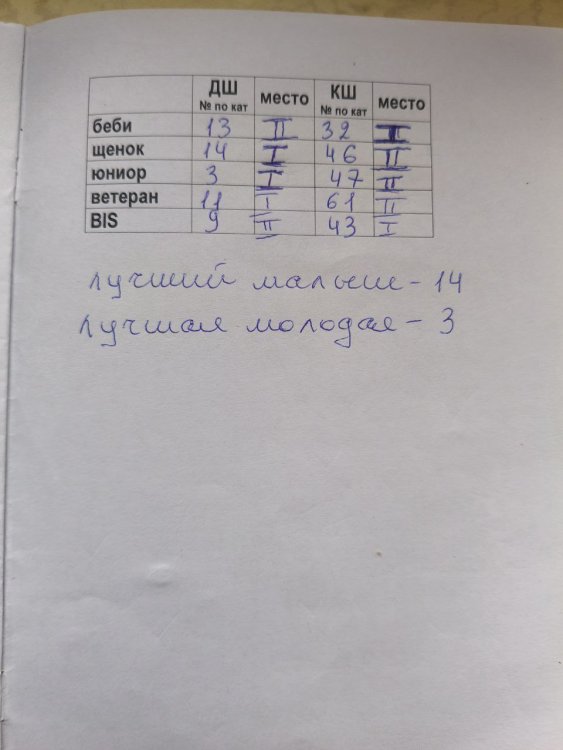 ДШ № по кат место КШ № по кат место
беби 13 II 32 I
щенок 14 I 46 II
юниор 3 I 47 II
ветеран 11 I 61 II
BIS 9 II 43 I
лучший малыш - 14
лучшая молодая - 3